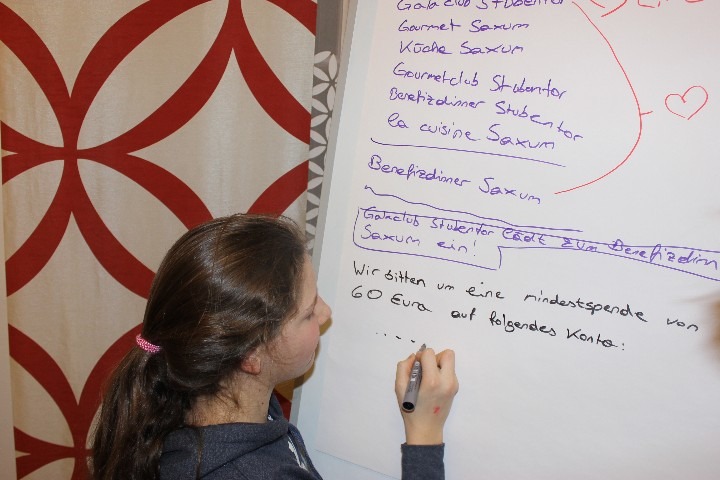 Galaclub Stubentor
Gourmet Saxum
Küche Saxum
Gourmetclub Stubentor
Benefizdinner Stubentor
la cuisine Saxum
Benefizdinner Saxum
Galaclub Stubentor lädt zum Benefizdinn
Saxum ein!
Wir bitten um eine mindestspende von
60 Euro auf folgendes Konto:
....